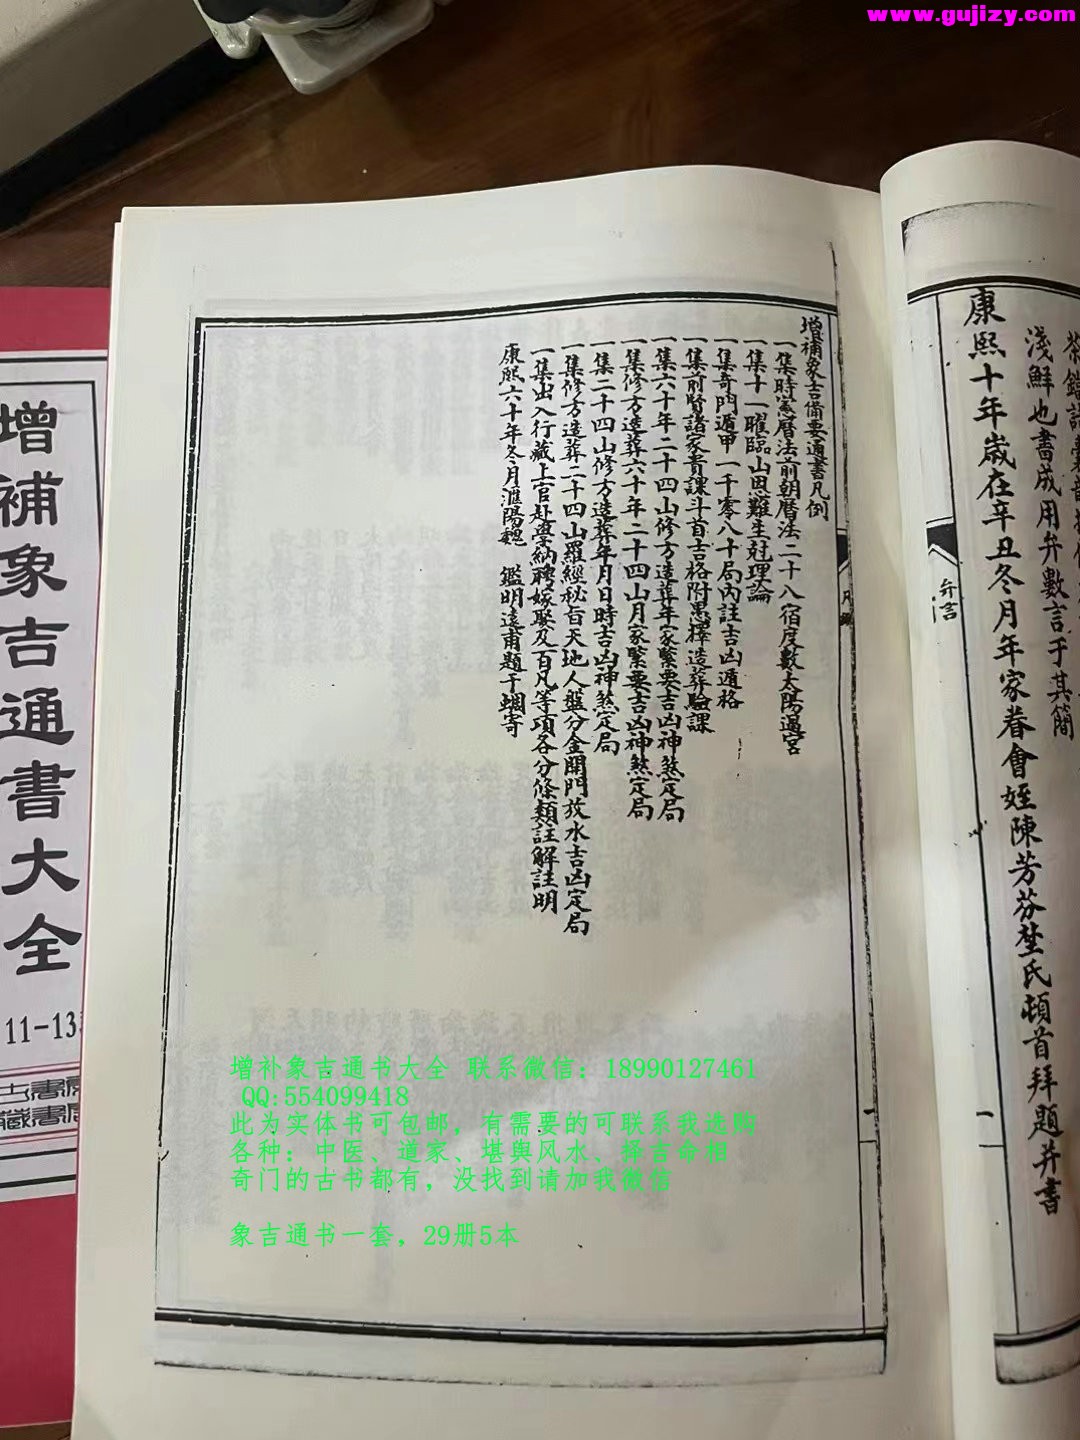 www.gujizy.com
淺鮮也書成用弁數言于其簡
康熙十年歲在辛丑冬月年家眷會姪陳芳芬埜氏頓首拜題并書
弁言
一
增補象吉備要通書凡例
一集時憲曆法前朝曆法二十八宿度數太陽過宮
一集十一曜臨山恩難生尅理論
一集奇門遁甲一千零八十局內註吉凶遁格
一集前賢諸家貴課斗首吉格附愚擇造葬驗課
一集六十年二十四山修方造葬年家緊要吉凶神煞定局
一集修方造葬六十年二十四山月家緊要吉凶神煞定局
一集二十四山修方造葬年月日時吉凶神煞定局
一集修方造葬二十四山羅經秘旨天地人盤分金開門放水吉凶定局
一集出入行藏上官赴學納聘嫁娶及百凡等項各分條類註解註明
康熙六十年冬月滙陽魏 鑑明遠甫題于蝸寄
增補象吉通書大全
11-13
增补象吉通书大全 联系微信：18990127461
QQ:554099418
此为实体书可包邮，有需要的可联系我选购
各种：中医、道家、堪舆风水、择吉命相
奇门的古书都有，没找到请加我微信
象吉通书一套，29册5本